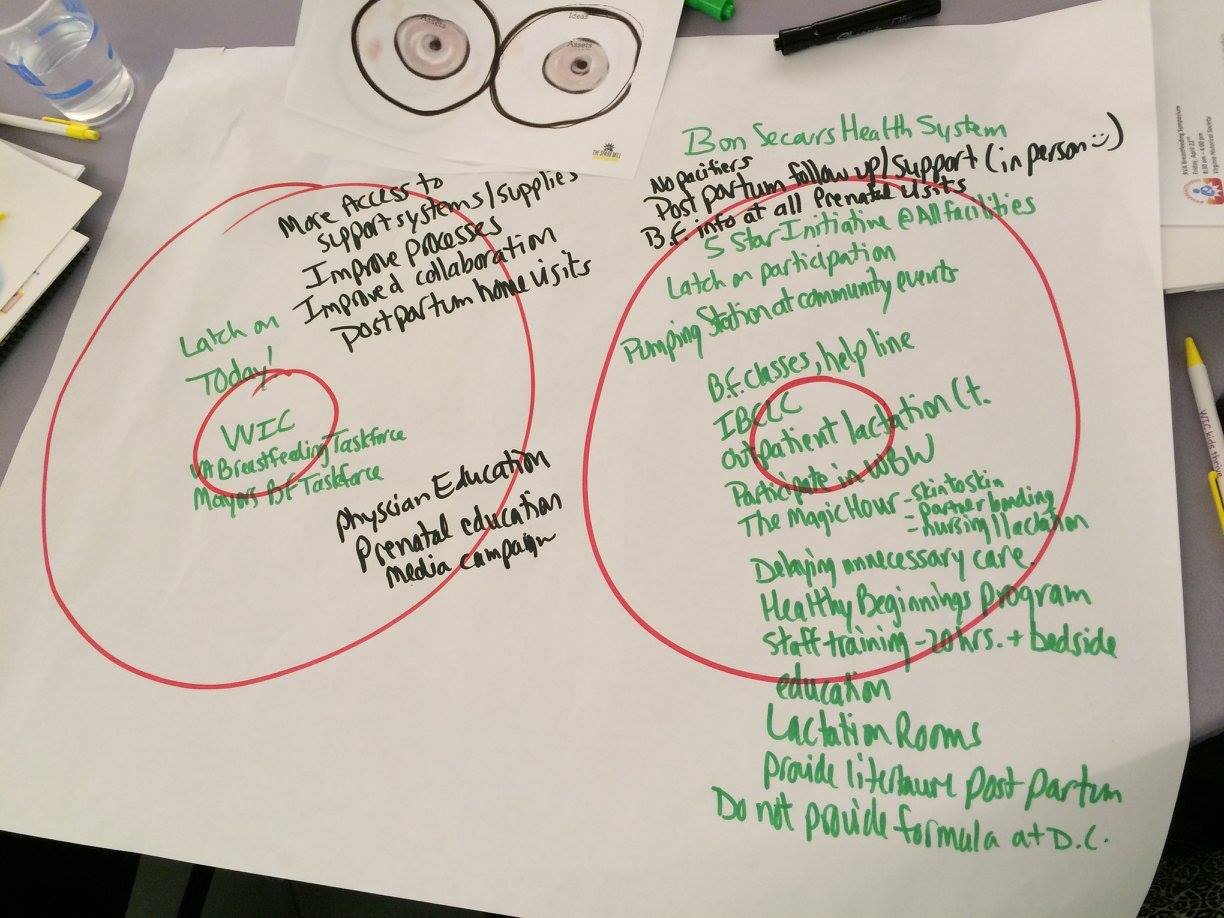 Assets
Ideas
Assets
THE SPARK MILL
More Access to
support systems/supplies
Improve processes
Improved collaboration
postpartum home visits
Latch on
Today!
WIC
VA Breastfeeding Taskforce
Mayors BF Taskforce
physcian Education
Prenatal education
Media campaign
Bon Secours Health System
No pacifiers
Post partum follow up/support (in person :))
B.F. info at all Prenatal visits
5 Star Initiative @ All facilities
Latch on participation
Pumping Station at community events
B.F. classes, help line
IBCLC
outpatient lactation Ct.
Participate in WBW
The Magic Hour - skin to skin
- partner bonding
- nursing/lactation
Delaying unnecessary care.
Healthy Beginnings Program
Staff training - 20 hrs. + bedside
education
Lactation Rooms
provide literaure post partum
Do not provide formula at D.C.
RVA Breastfeeding Symposium
Friday, April 22nd
8:30 am - 4:00 pm
Virginia Historical Society
WIC kids